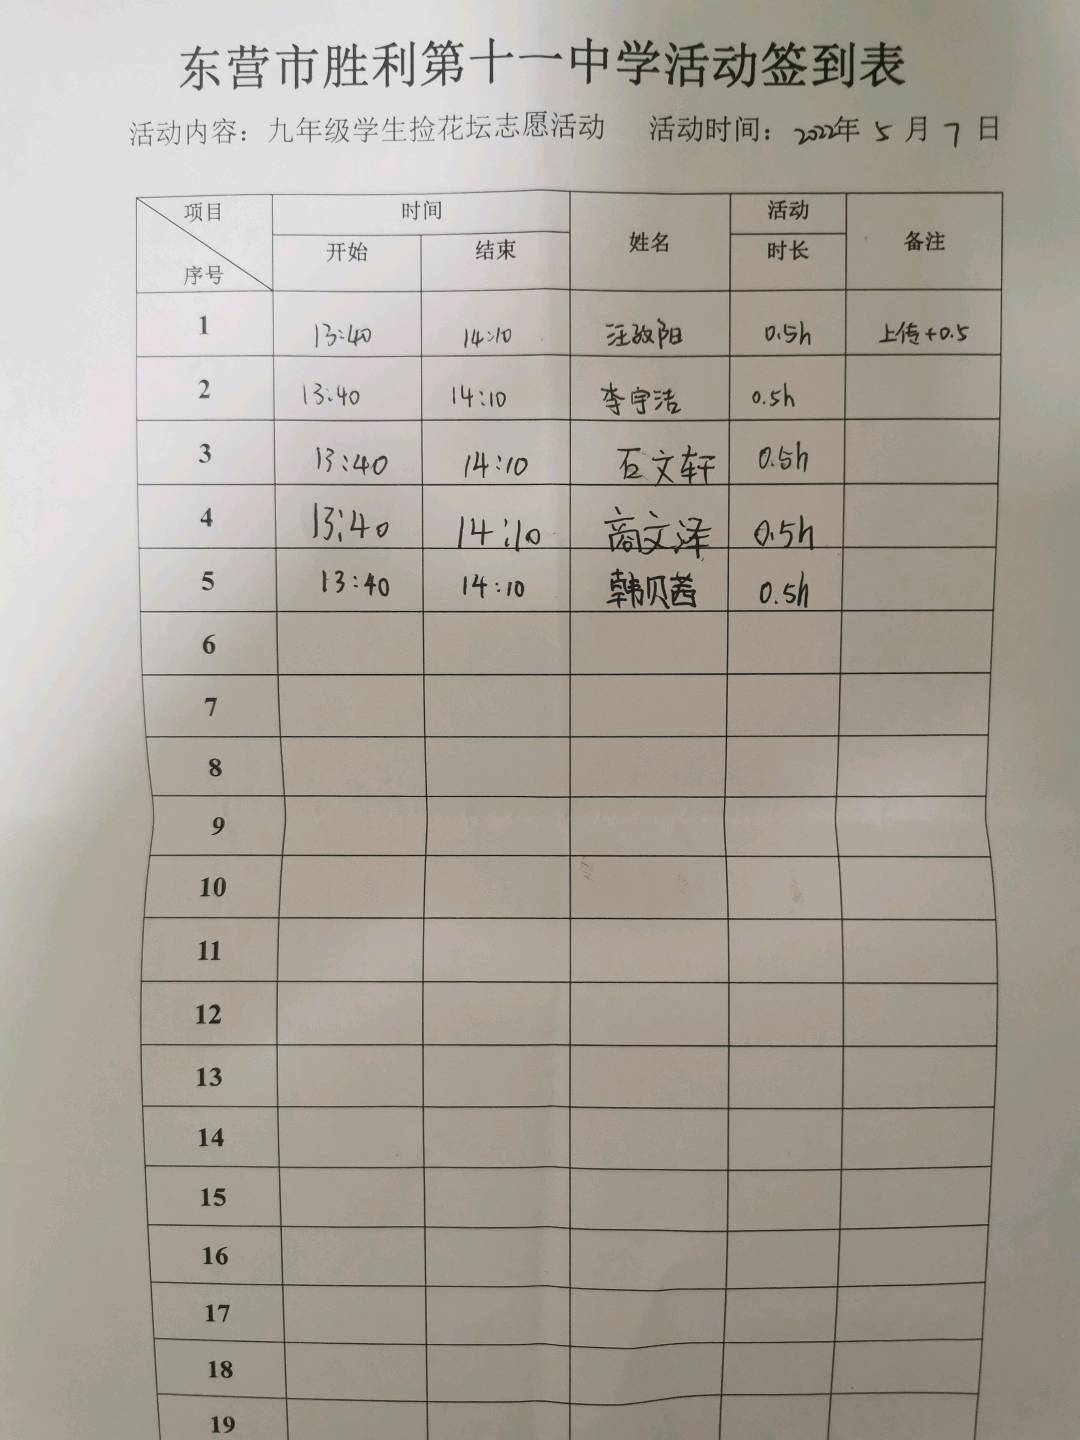 东营市胜利第十一中学活动签到表
活动内容：九年级学生捡花坛志愿活动 活动时间：2022年 5 月 7 日
项目 时间 姓名 活动 备注
序号 开始 结束 时长
1 13:40 14:10 汪政阳 0.5h 上传+0.5
2 13:40 14:10 李宇洁 0.5h
3 13:40 14:10 石文轩 0.5h
4 13:40 14:10 商文泽 0.5h
5 13:40 14:10 韩贝茜 0.5h
6
7
8
9
10
11
12
13
14
15
16
17
18
19